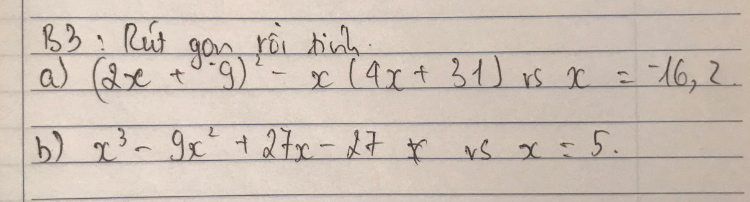 B3: Rút gọn rồi tính.
a) (2x + -9)² - x (4x + 31) vs x = -16,2
b) x³ - 9x² + 27x - 27 vs x = 5.